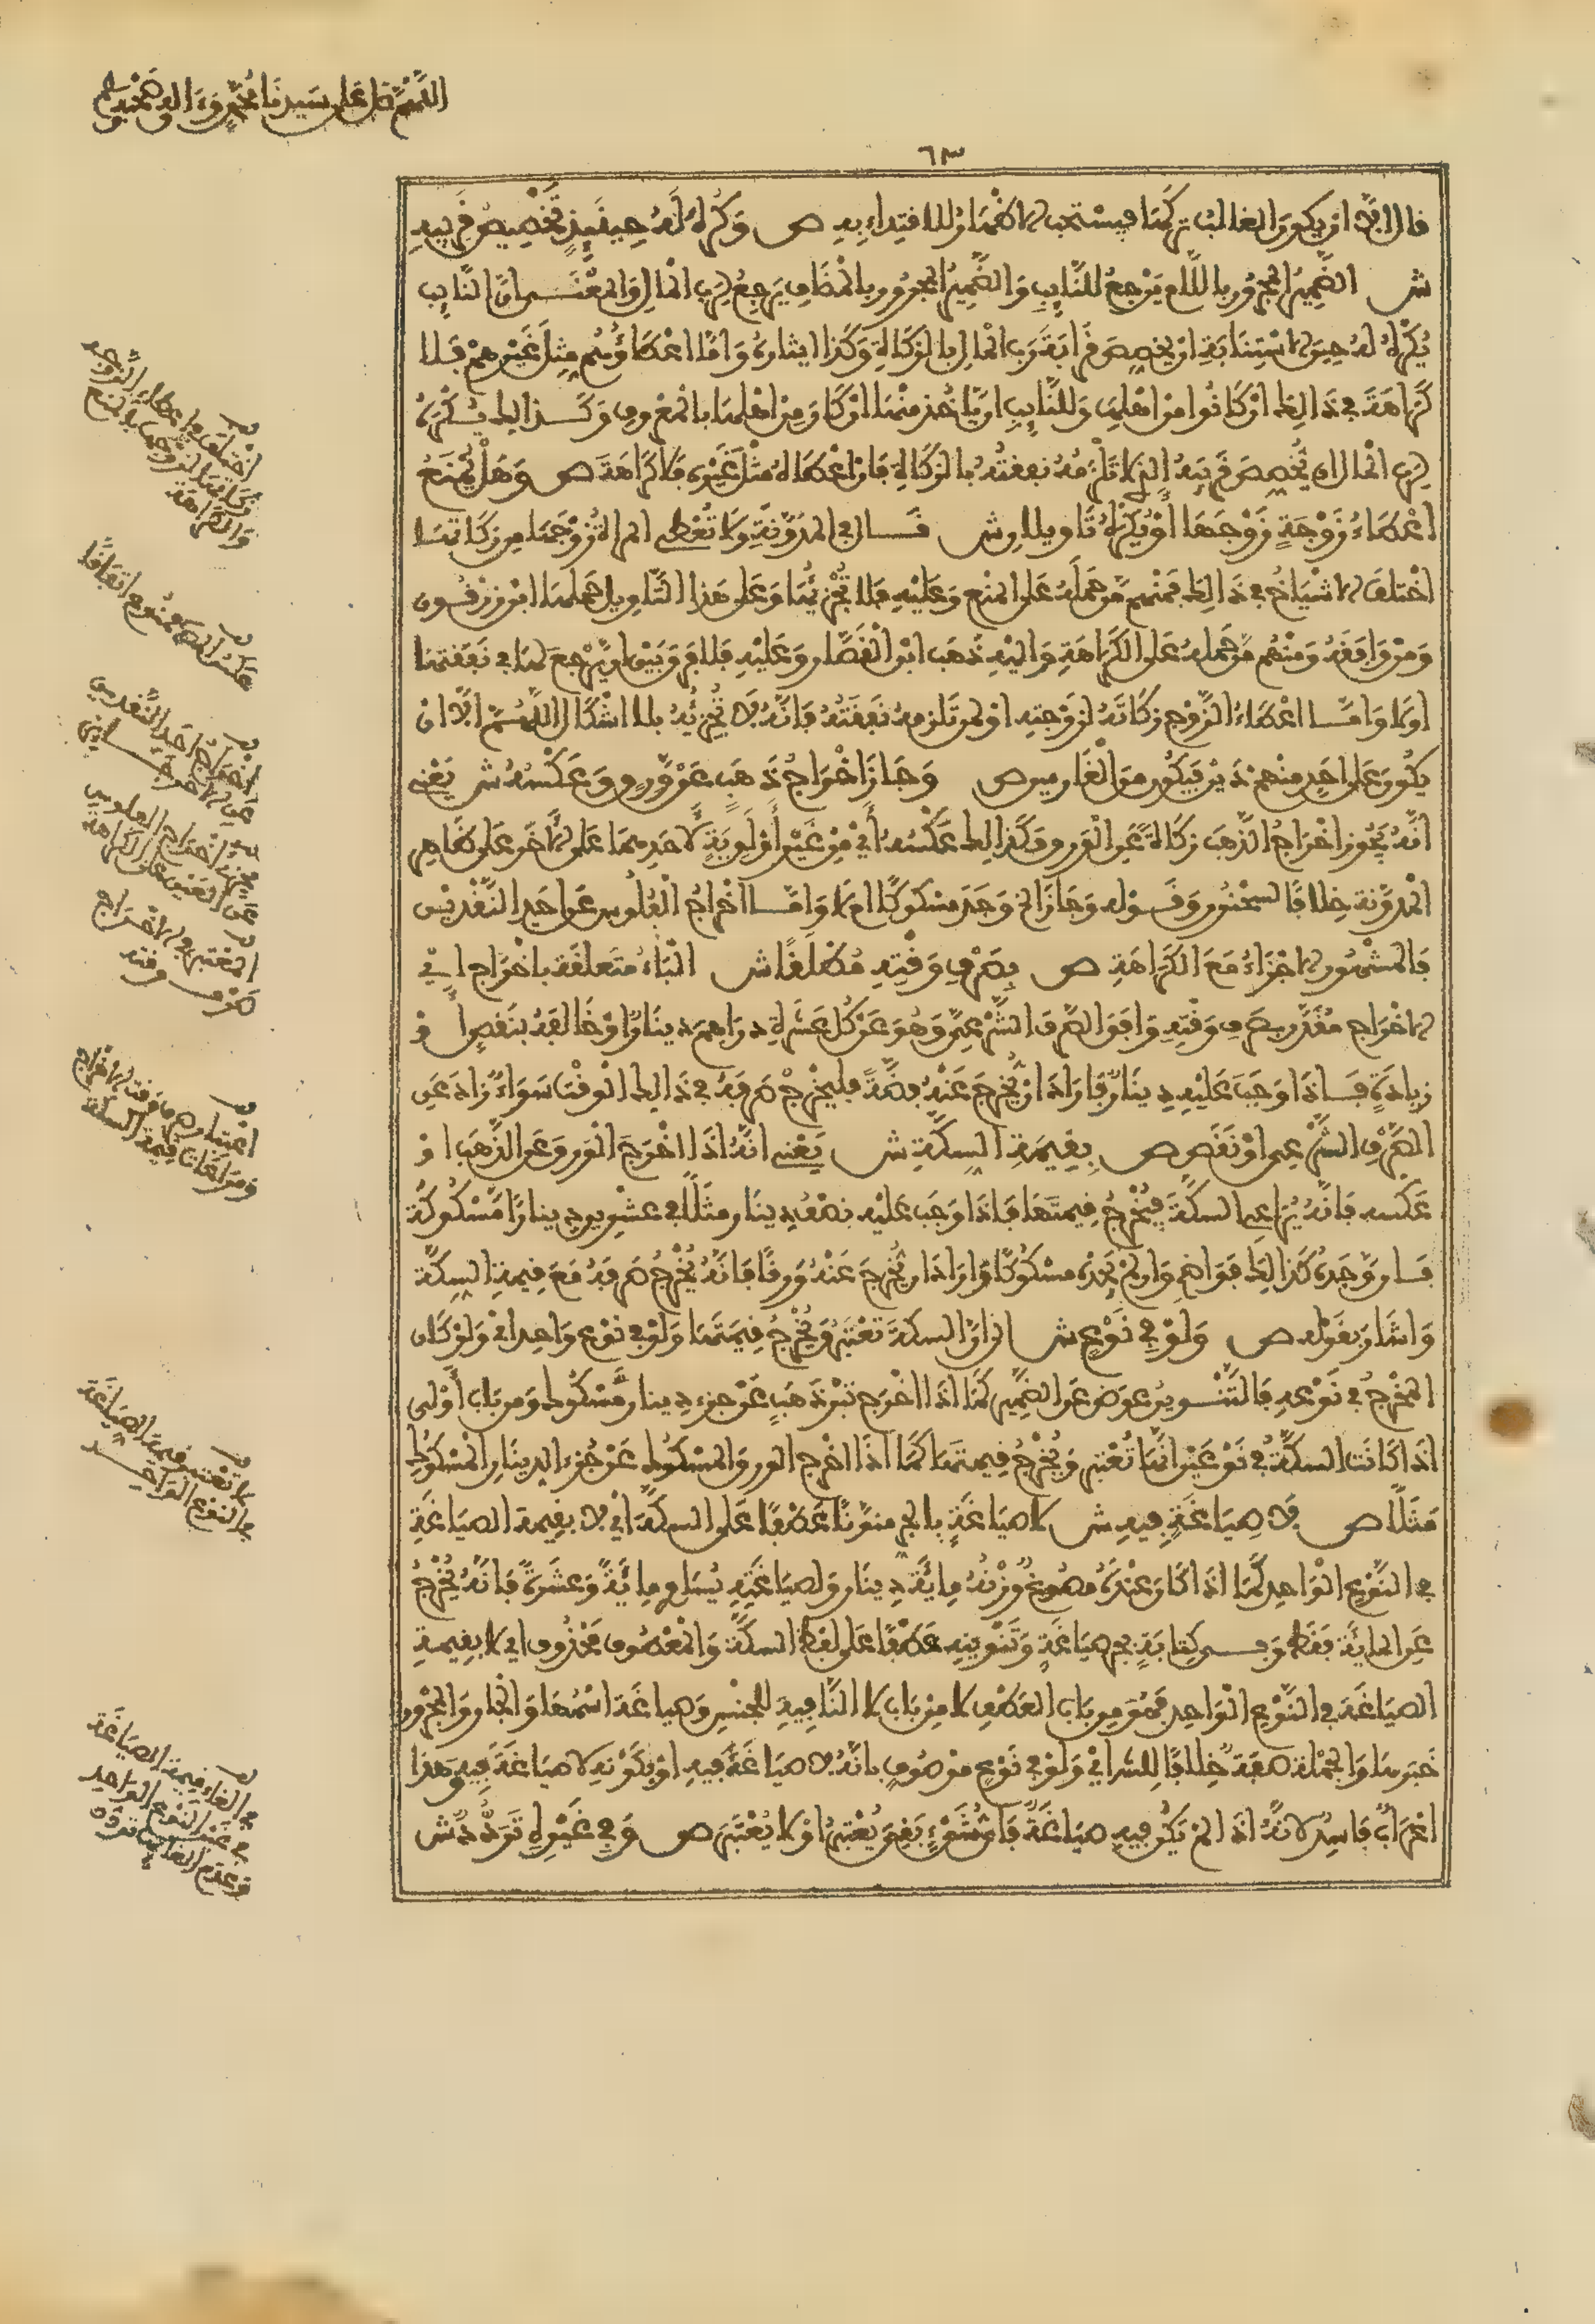 اللهم صل على سيدنا محمد وءاله وصحبه وسلم
٦٣
قال إلا أن يكون الغالب تركها فيستحب الإظهار للاقتداء به ص وكره له حينئذ تخصيص قريبه
ش الضمير المجرور باللام يرجع للنايب والضمير المجرور بالمضاف يرجع لرب المال والمعنى أن النايب
يكره له حين الاستنابة أن يخصص قرابة رب المال بالزكاة وكذا إيثاره وأما إعطاؤهم مثل غيرهم فلا
كراهة في ذلك إن كانوا من أهلها وللنايب أن يأخذ منها إن كان من أهلها بالمعروف وكذلك يكره
لرب المال أن يخصص قريبه الذي لا تلزمه نفقته بالزكاة فإن أعطاه مثل غيره فلا كراهة ص وهل يمنع
إعطاء زوجة زوجها أو يكره تاويلان ش قال في المدونة ولا تعطي المرأة زوجها من زكاتها
اختلف الأشياخ في ذلك فمنهم من حمله على المنع وعليه فلا تجزئها وعلى هذا التاويل حملها ابن زرقون
ومن وافقه ومنهم من حمله على الكراهة وإليه ذهب ابن القصار وعليه فلا فرق بين أن يرجع لها في نفقتها
أو لا وأما إعطاء الزوج زكاته لزوجته أو لمن تلزمه نفقته فإنه لا تجزئه بلا إشكال اللهم إلا أن
يكون على أحد منهم دين فيكون من الغارمين ص وجاز إخراج ذهب عن ورق وعكسه ش يعني
أنه يجوز إخراج الذهب زكاة عن الورق وكذلك عكسه أي من غير أولوية لأحدهما على الآخر على ظاهر
المدونة خلافا لسحنون وقوله وجاز الخ وجد مسكوكا أم لا وأما إخراج الفلوس عن أحد النقدين
فالمشهور الإجزاء مع الكراهة ص بصرف وقته مطلقا ش الباء متعلقة بإخراج أي
الإخراج مقدر بصرف وقته وافق الصرف الشرعي وهو عن كل عشرة دراهم دينارا أو خالفه بنقص أو
زيادة فإذا وجب عليه دينار فأراد أن يخرج عنه فضة فليخرج صرفه في ذلك الوقت سواء زاد عن
الصرف الشرعي أو نقص ص بقيمة السكة ش يعني أنه إذا أخرج الورق عن الذهب أو
عكسه فإنه يراعي السكة فيخرج قيمتها فإذا وجب عليه نصف دينار مثلا في عشرين دينارا مسكوكة
فإن وجده كذلك فواضح وإن لم يجده مسكوكا وأراد أن يخرج عنه ورقا فإنه يخرج صرفه مع قيمة السكة
وأشار بقوله ص ولو في نوع ش إلى أن السكة تعتبر وتخرج قيمتها ولو في نوع واحد أي ولو كان
المخرج في نوعه فالتنوين عوض عن الضمير كما إذا أخرج تبر ذهب عن جزء دينار مسكوك ومن باب أولى
إذا كانت السكة في نوعين أنها تعتبر وتخرج قيمتها كما إذا أخرج الورق المسكوك عن جزء الدينار المسكوك
مثلا ص لا صياغة فيه ش لا صياغة بالجر منونا عطفا على السكة أي لا بقيمة الصياغة
في النوع الواحد كما إذا كان عنده مصوغ وزنه مائة دينار ولصياغته يساوي مائة وعشرة فإنه يخرج
عن المائة فقط وفي كتابة بجر صياغة وتنوينه عطفا على لفظ السكة والمعطوف محذوف أي لا بقيمة
الصياغة في النوع الواحد فهو من باب العطف لا من باب لا النافية للجنس وصياغة اسمها والجار والمجرور
خبرها والجملة صفة خلافا للشراح أي ولو في نوع موصوف بأنه لا صياغة فيه أو بكونه لا صياغة فيه وهذا
إعراب فاسد لأنه إذا لم يكن فيه صياغة فأي شيء بقي يعتبر أو لا يعتبر ص وفي غيره تردد ش
قف اختلف في إعطاء الزوجة
زكاتها لزوجها بالمنع
والكراهة
قف عكس الصورة ممنوع اتفاقا
قف إخراج أحد النقدين
عن الآخر جائز
قف يجزئ إخراج الفلوس
عن العين على الكراهة
قف المعتبر في الإخراج
صرف وقته
قف اعتبار صرف وقت الإخراج
ومراعاة قيمة السكة
قف لا تعتبر قيمة الصياغة
في النوع الواحد
قف في إلغاء قيمة الصياغة
في غير النوع الواحد
وعدم إلغائها تردد